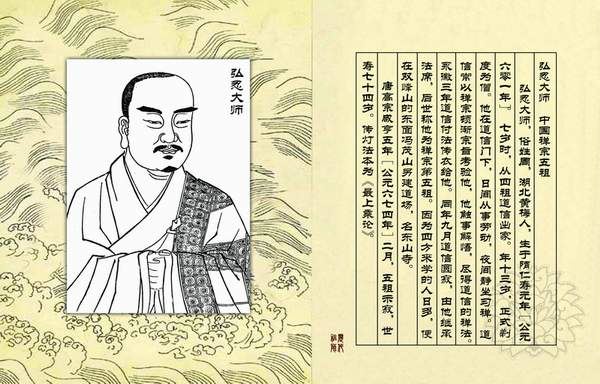 弘忍大师
弘忍大师 中国禅宗五祖
弘忍大师，俗姓周，湖北黄梅人，生于隋仁寿元年〔公元
六零一年〕七岁时，从四祖道信出家。年十三岁，正式剃
度为僧。他在道信门下，日间从事劳动，夜间静坐习禅。道
信常以禅宗顿渐宗旨考验他，他触事解悟，尽得道信的禅法。
永徽三年道信付法传衣给他。同年九月道信圆寂，由他继承
法席，后世称他为禅宗第五祖。因为四方来学的人日多，便
在双峰山的东面冯茂山另建道场，名东山寺。
唐高宗咸亨五年〔公元六七四年〕二月，五祖示寂，世
寿七十四岁。传灯法本为《最上乘论》。